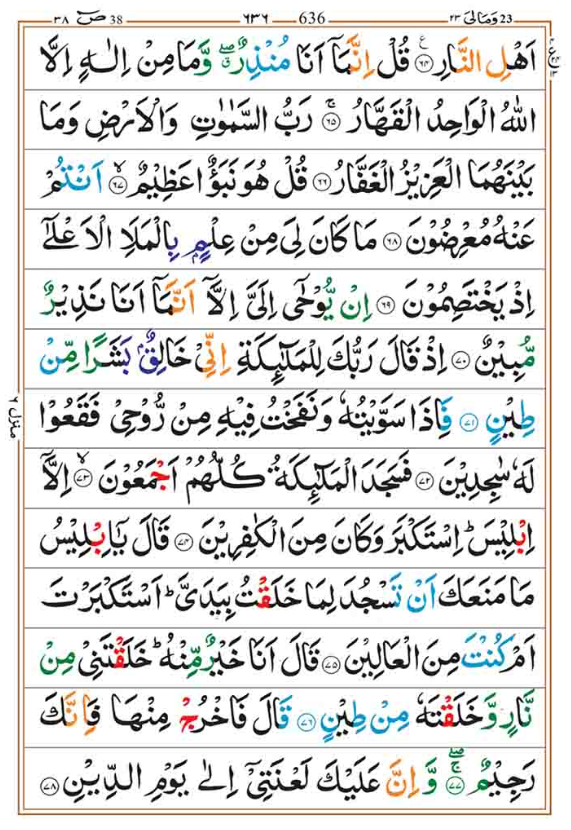 23 وَمَالِیَ ٢٣ 636 ٦٣٦ 38 صٓ ٣٨
اَهْلِ النَّارِ ﴿۶۴﴾ قُلْ اِنَّمَاۤ اَنَا مُنْذِرٌ ۖۗ وَّمَا مِنْ اِلٰهٍ اِلَّا
اللّٰهُ الْوَاحِدُ الْقَهَّارُ ﴿۶۵﴾ رَبُّ السَّمٰوٰتِ وَالْاَرْضِ وَمَا
بَیْنَهُمَا الْعَزِیْزُ الْغَفَّارُ ﴿۶۶﴾ قُلْ هُوَ نَبَؤٌا عَظِیْمٌ ﴿۶۷﴾ اَنْتُمْ
عَنْهُ مُعْرِضُوْنَ ﴿۶۸﴾ مَا كَانَ لِیَ مِنْ عِلْمٍۭ بِالْمَلَاِ الْاَعْلٰۤی
اِذْ یَخْتَصِمُوْنَ ﴿۶۹﴾ اِنْ یُّوْحٰۤی اِلَیَّ اِلَّاۤ اَنَّمَاۤ اَنَا نَذِیْرٌ
مُّبِیْنٌ ﴿۷۰﴾ اِذْ قَالَ رَبُّكَ لِلْمَلٰٓىِٕكَةِ اِنِّیْ خَالِقٌۢ بَشَرًا مِّنْ
طِیْنٍ ﴿۷۱﴾ فَاِذَا سَوَّیْتُهٗ وَنَفَخْتُ فِیْهِ مِنْ رُّوْحِیْ فَقَعُوْا
لَهٗ سٰجِدِیْنَ ﴿۷۲﴾ فَسَجَدَ الْمَلٰٓىِٕكَةُ كُلُّهُمْ اَجْمَعُوْنَ ﴿۷۳﴾ اِلَّاۤ
اِبْلِیْسَ ؕ اِسْتَكْبَرَ وَكَانَ مِنَ الْكٰفِرِیْنَ ﴿۷۴﴾ قَالَ یٰۤاِبْلِیْسُ
مَا مَنَعَكَ اَنْ تَسْجُدَ لِمَا خَلَقْتُ بِیَدَیَّ ؕ اَسْتَكْبَرْتَ
اَمْ كُنْتَ مِنَ الْعَالِیْنَ ﴿۷۵﴾ قَالَ اَنَا خَیْرٌ مِّنْهُ ؕ خَلَقْتَنِیْ مِنْ
نَّارٍ وَّخَلَقْتَهٗ مِنْ طِیْنٍ ﴿۷۶﴾ قَالَ فَاخْرُجْ مِنْهَا فَاِنَّكَ
رَجِیْمٌ ﴿۷۷﴾ ۚۖ وَّاِنَّ عَلَیْكَ لَعْنَتِیْۤ اِلٰی یَوْمِ الدِّیْنِ ﴿۷۸﴾
منزل ٦